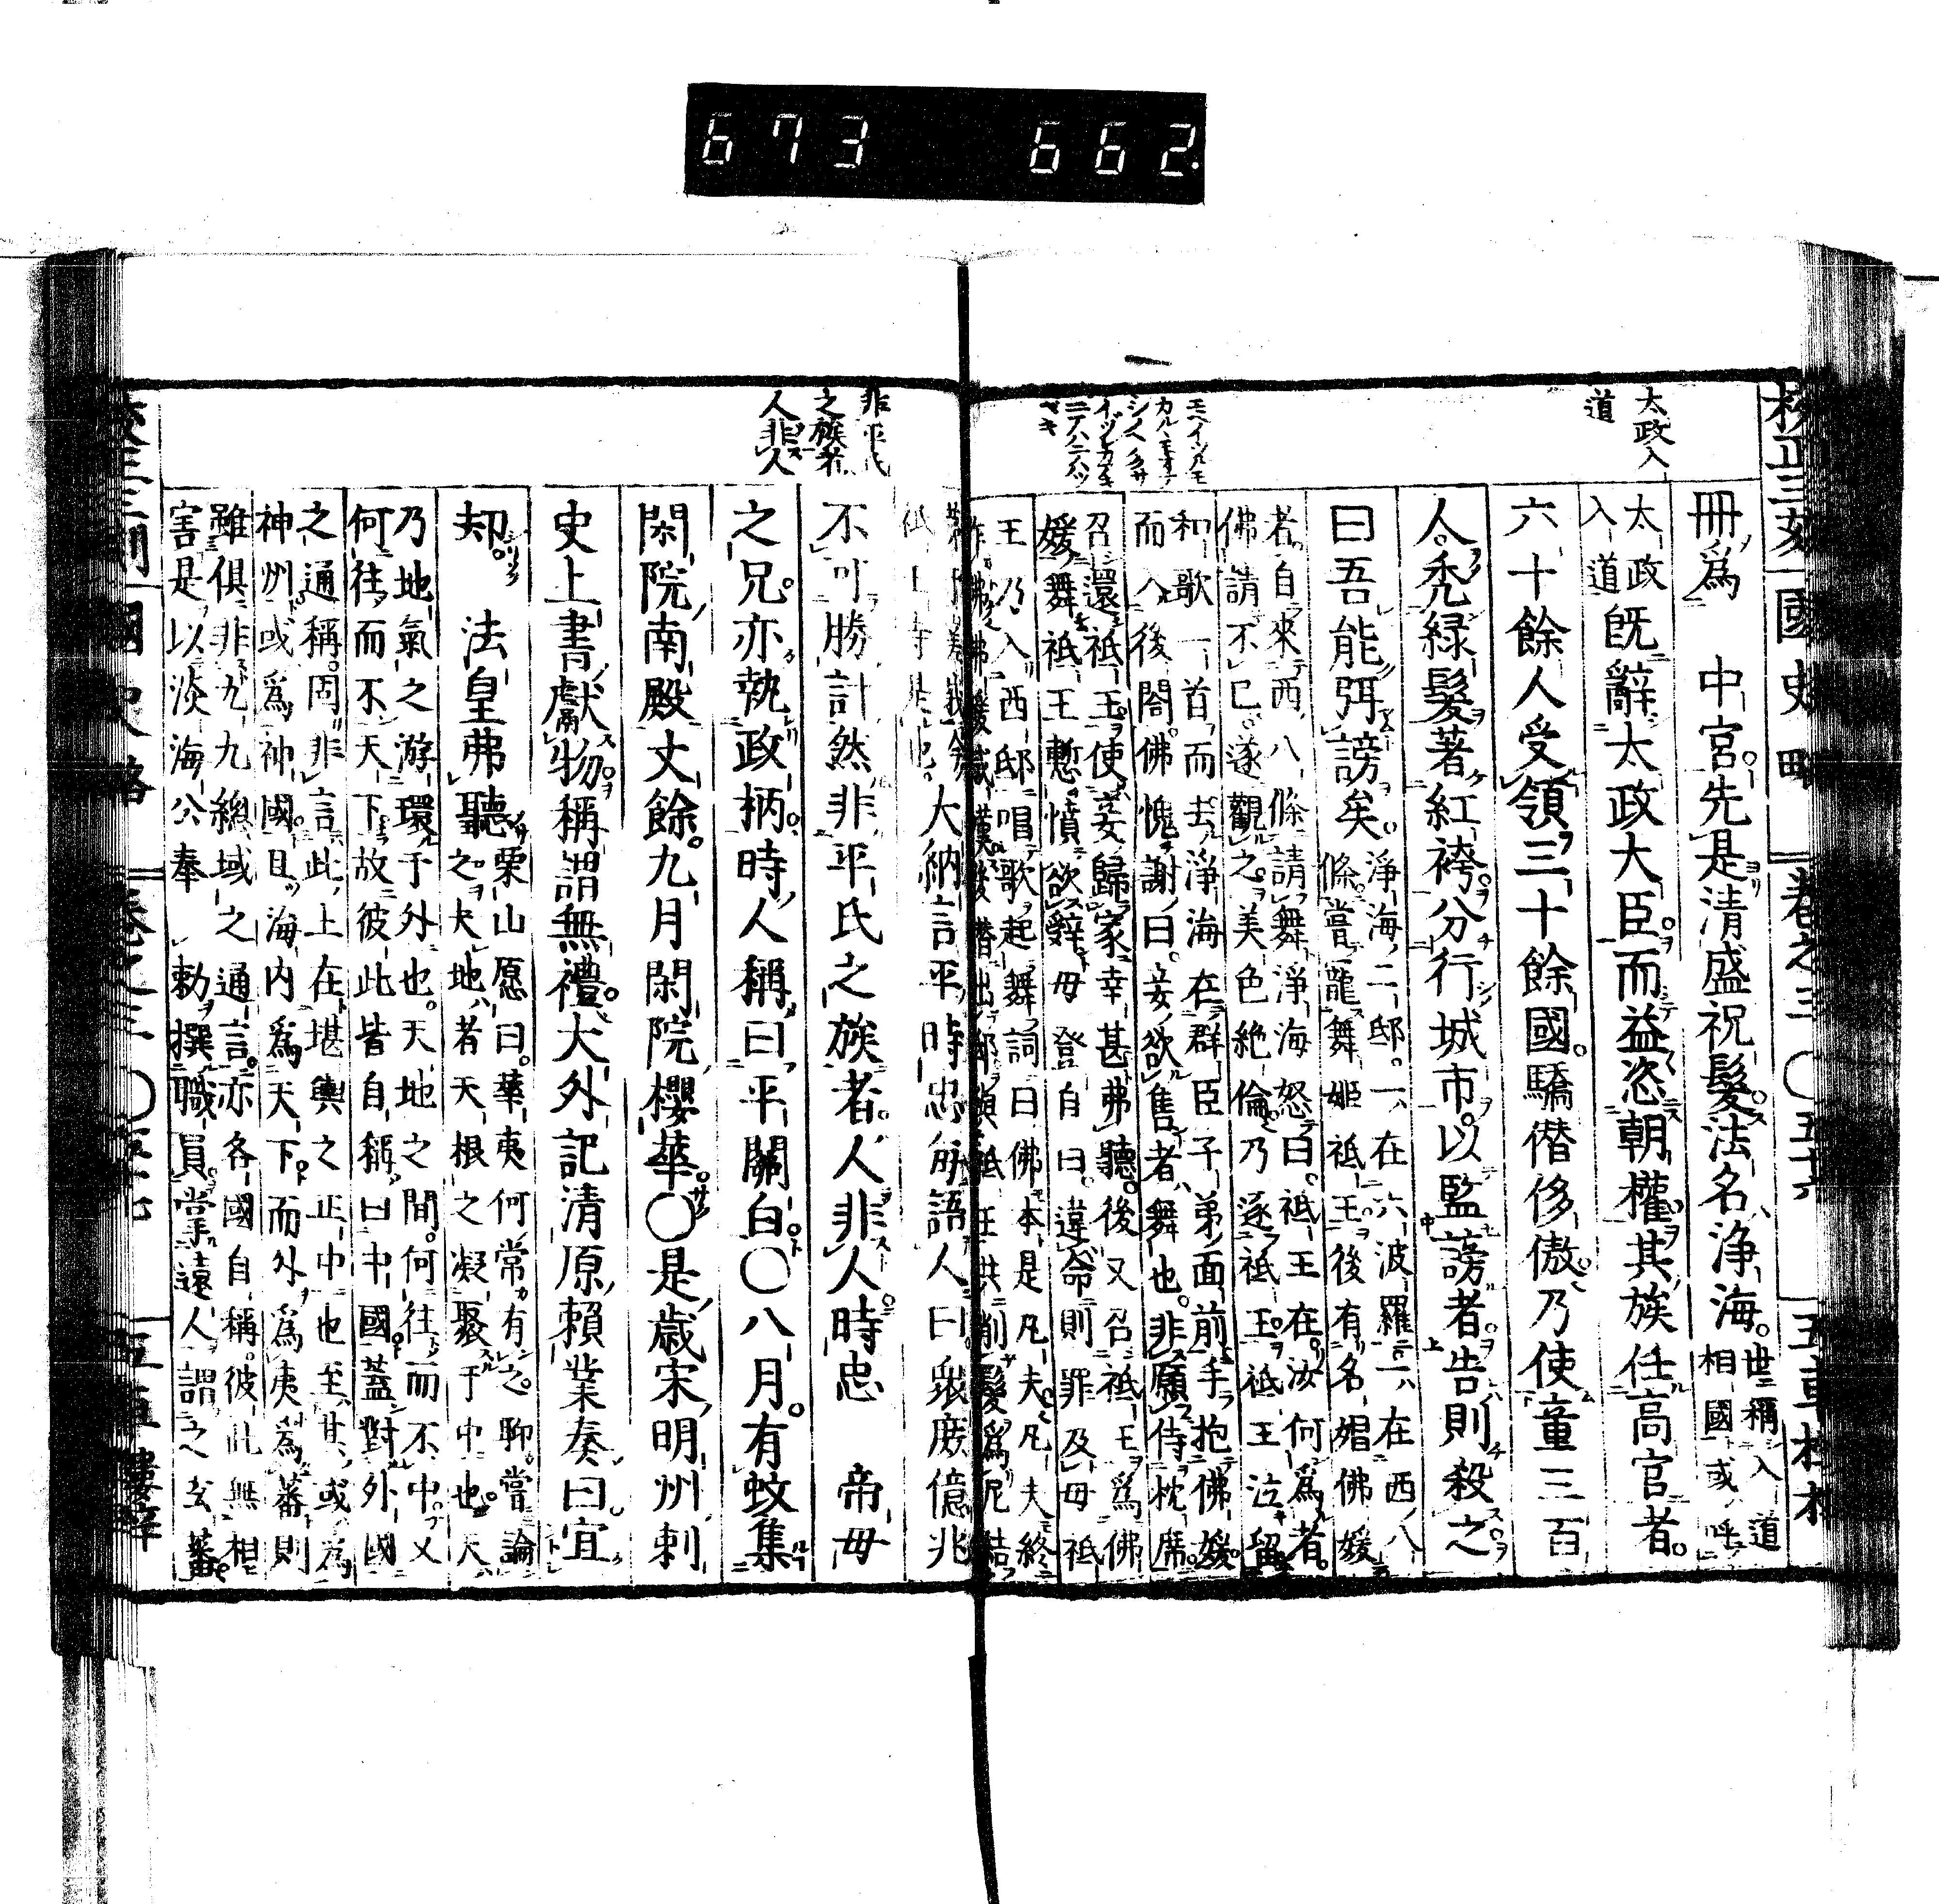 673 662
校正三刻 國史略 卷之三 〇五十六 五車樓梓
太政入
道
冊爲 中宮先是清盛祝髮法名淨海。世稱入道
相國或呼
太政
入道既辭太政大臣而益恣朝權其族任高官者。
六十餘人受領三十餘國。驕僭侈傲乃使童三百
人禿綠髮著紅袴分行城市。以監謗者告則殺之
曰吾能弭謗矣。淨海二邸。一在六波羅一在西八
條嘗寵舞姬祇王後有名娼佛媛
者自來西八條請舞淨海怒曰。祇王在汝何爲者。
佛請不已。遂觀之美色絕倫乃逐祇王祇王泣留
和歌一首而去淨海在群臣子弟面前手抱佛媛
而入後閤佛愧謝曰。妾欲售者舞也。非願侍枕席
召還祇王使妾歸家幸甚弗聽後又召祇王爲佛
媛舞祇王慙憤欲辭母登自曰。違命則罪及母祇
王乃入西邸唱歌起舞詞曰佛本是凡夫凡夫終
モヘイツルモ
カルヽモオナ
シノヘノクサ
イツレカアキ
ニアハテハツ
ヘキ
非平氏
之族者
人非人
大納言平時忠所語人曰。衆庶億兆
不可勝計然非平氏之族者。人非人時忠 帝母
之兄。亦執政柄時人稱曰平關白〇八月。有蚊集
閑院南殿丈餘。九月閑院櫻華〇是歲宋明州刺
史上書獻物稱謂無禮。大外記清原賴業奏曰。宜
却。 法皇弗聽栗山愿曰。華夷何常有之。聊嘗論
之夫地者天根之凝聚于中也天
乃地氣之游環于外也。天地之間。何往而不中又
何往而不天下故彼此皆自稱曰中國蓋對外國
之通稱。固非言此上在堪輿之正中也至其或爲
神州或爲神國且海内爲天下。而外爲夷爲蕃則
雖俱非九九總域之通言。亦各國自稱。彼此無相
害是以淡海公奉 勅撰職員掌遠人謂之玄蕃